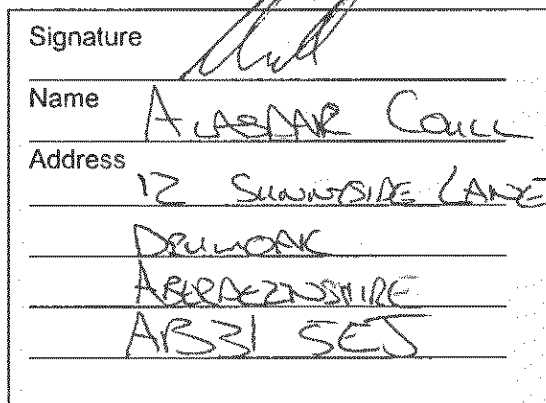 Signature
Name ALASDAIR COULL
Address
12 SUNNYSIDE LANE
DRUMOAK
ABERDEENSHIRE
AB31 5EJ